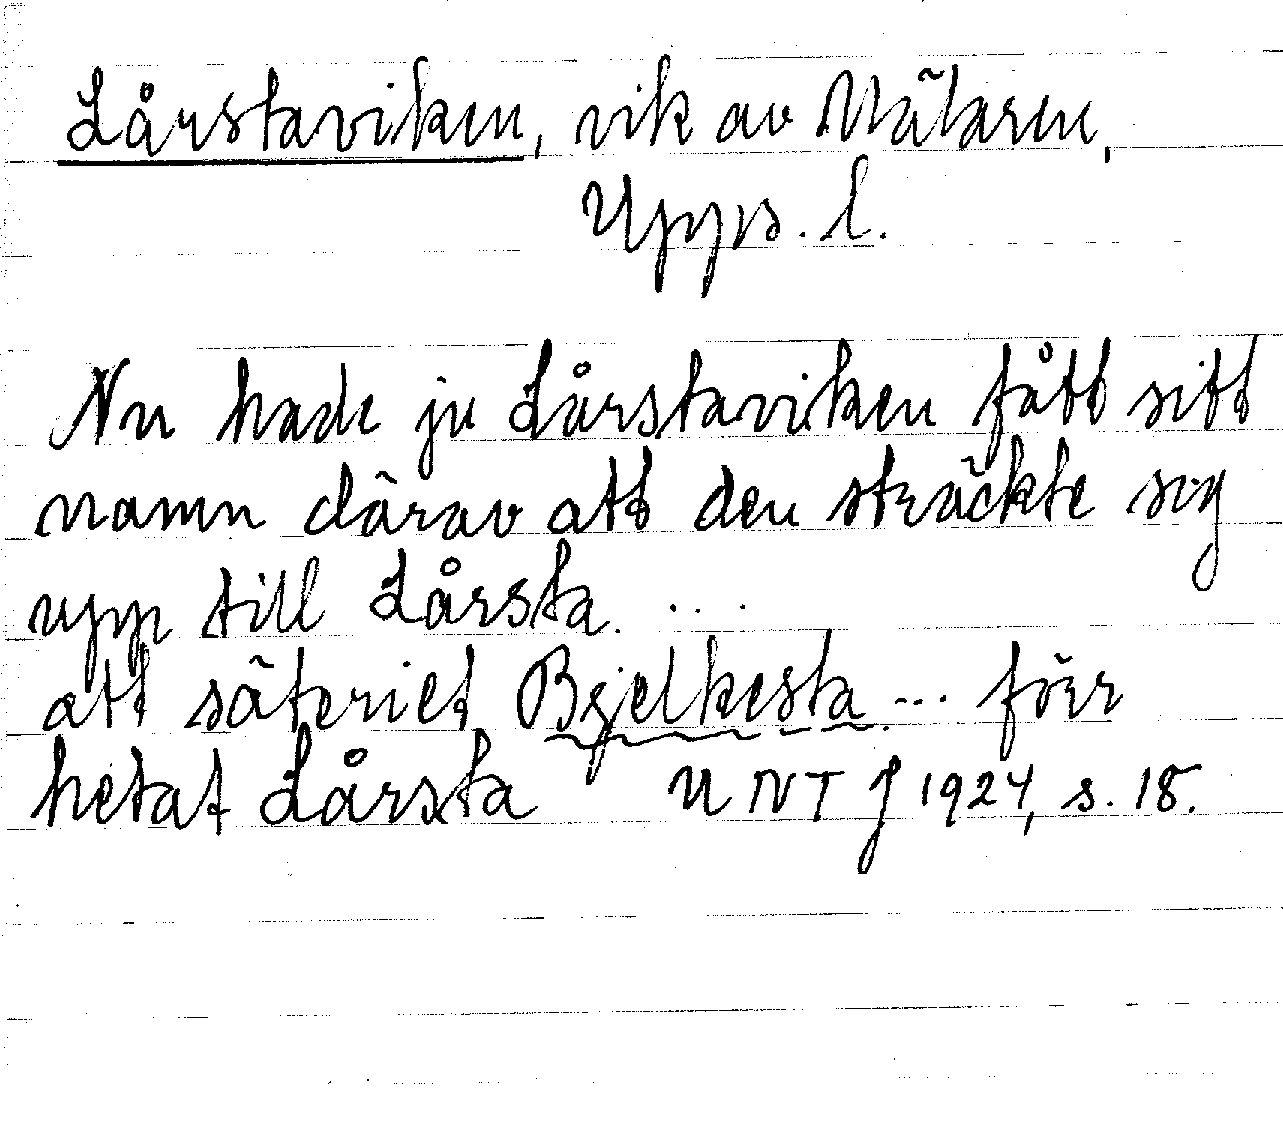 Lårstaviken, vik av Mälaren,
Upps. l.
Nu hade ju Lårstaviken fått sitt
namn därav att den sträckte sig
upp till Lårsta. ...
att säteriet Bjelkesta ... förr
hetat Lårsta UNT J 1924, s. 18.